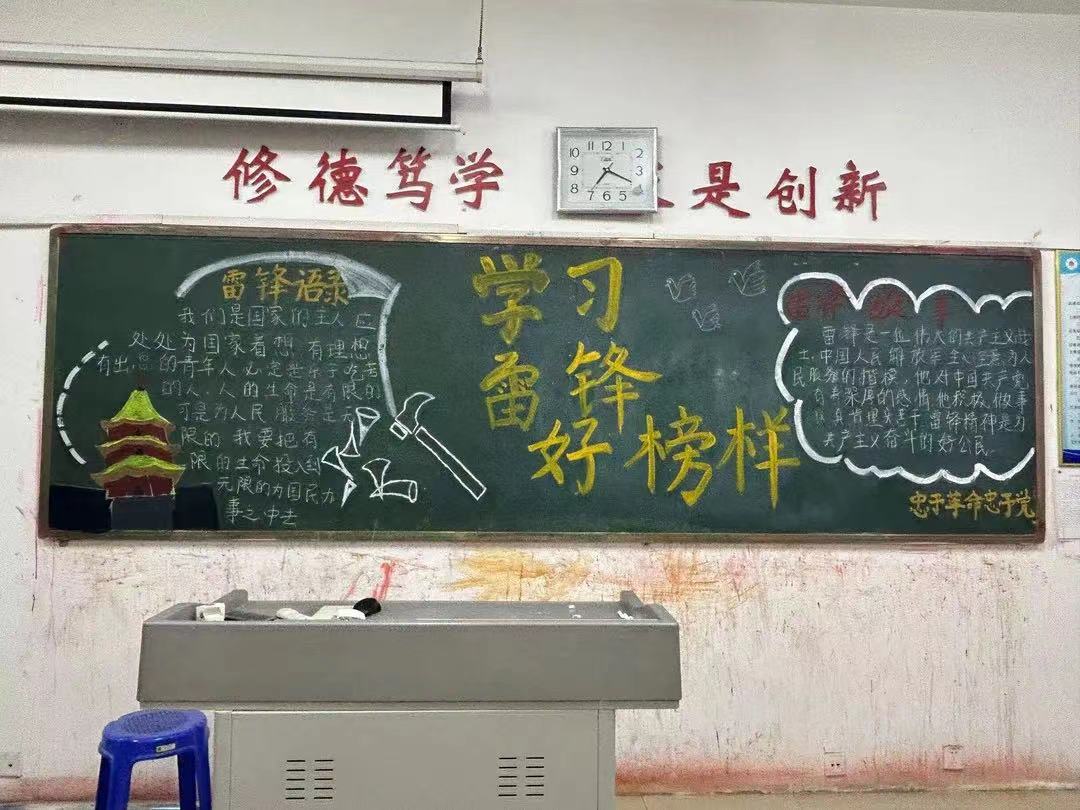 修德笃学 是创新
10 11 12 1 2
9 3
8 7 6 5 4
学习
雷锋
好榜样
雷锋语录
我们是国家的主人 应
处处为国家着想,有理想
有出息的青年人必定是乐于吃苦
的人,人的生命是有限的
可是为人民服务是无
限的 我要把有
限的生命投入到
无限的为国民办
事之中去
雷锋故事
雷锋是一位伟大的共产主义战
士,中国人民解放军 为人
民服务的楷模,他对中国共产党
有着深厚的感情他积极做事
认真肯埋头苦干雷锋精神是为
共产主义奋斗的好公民.
忠于革命忠于党